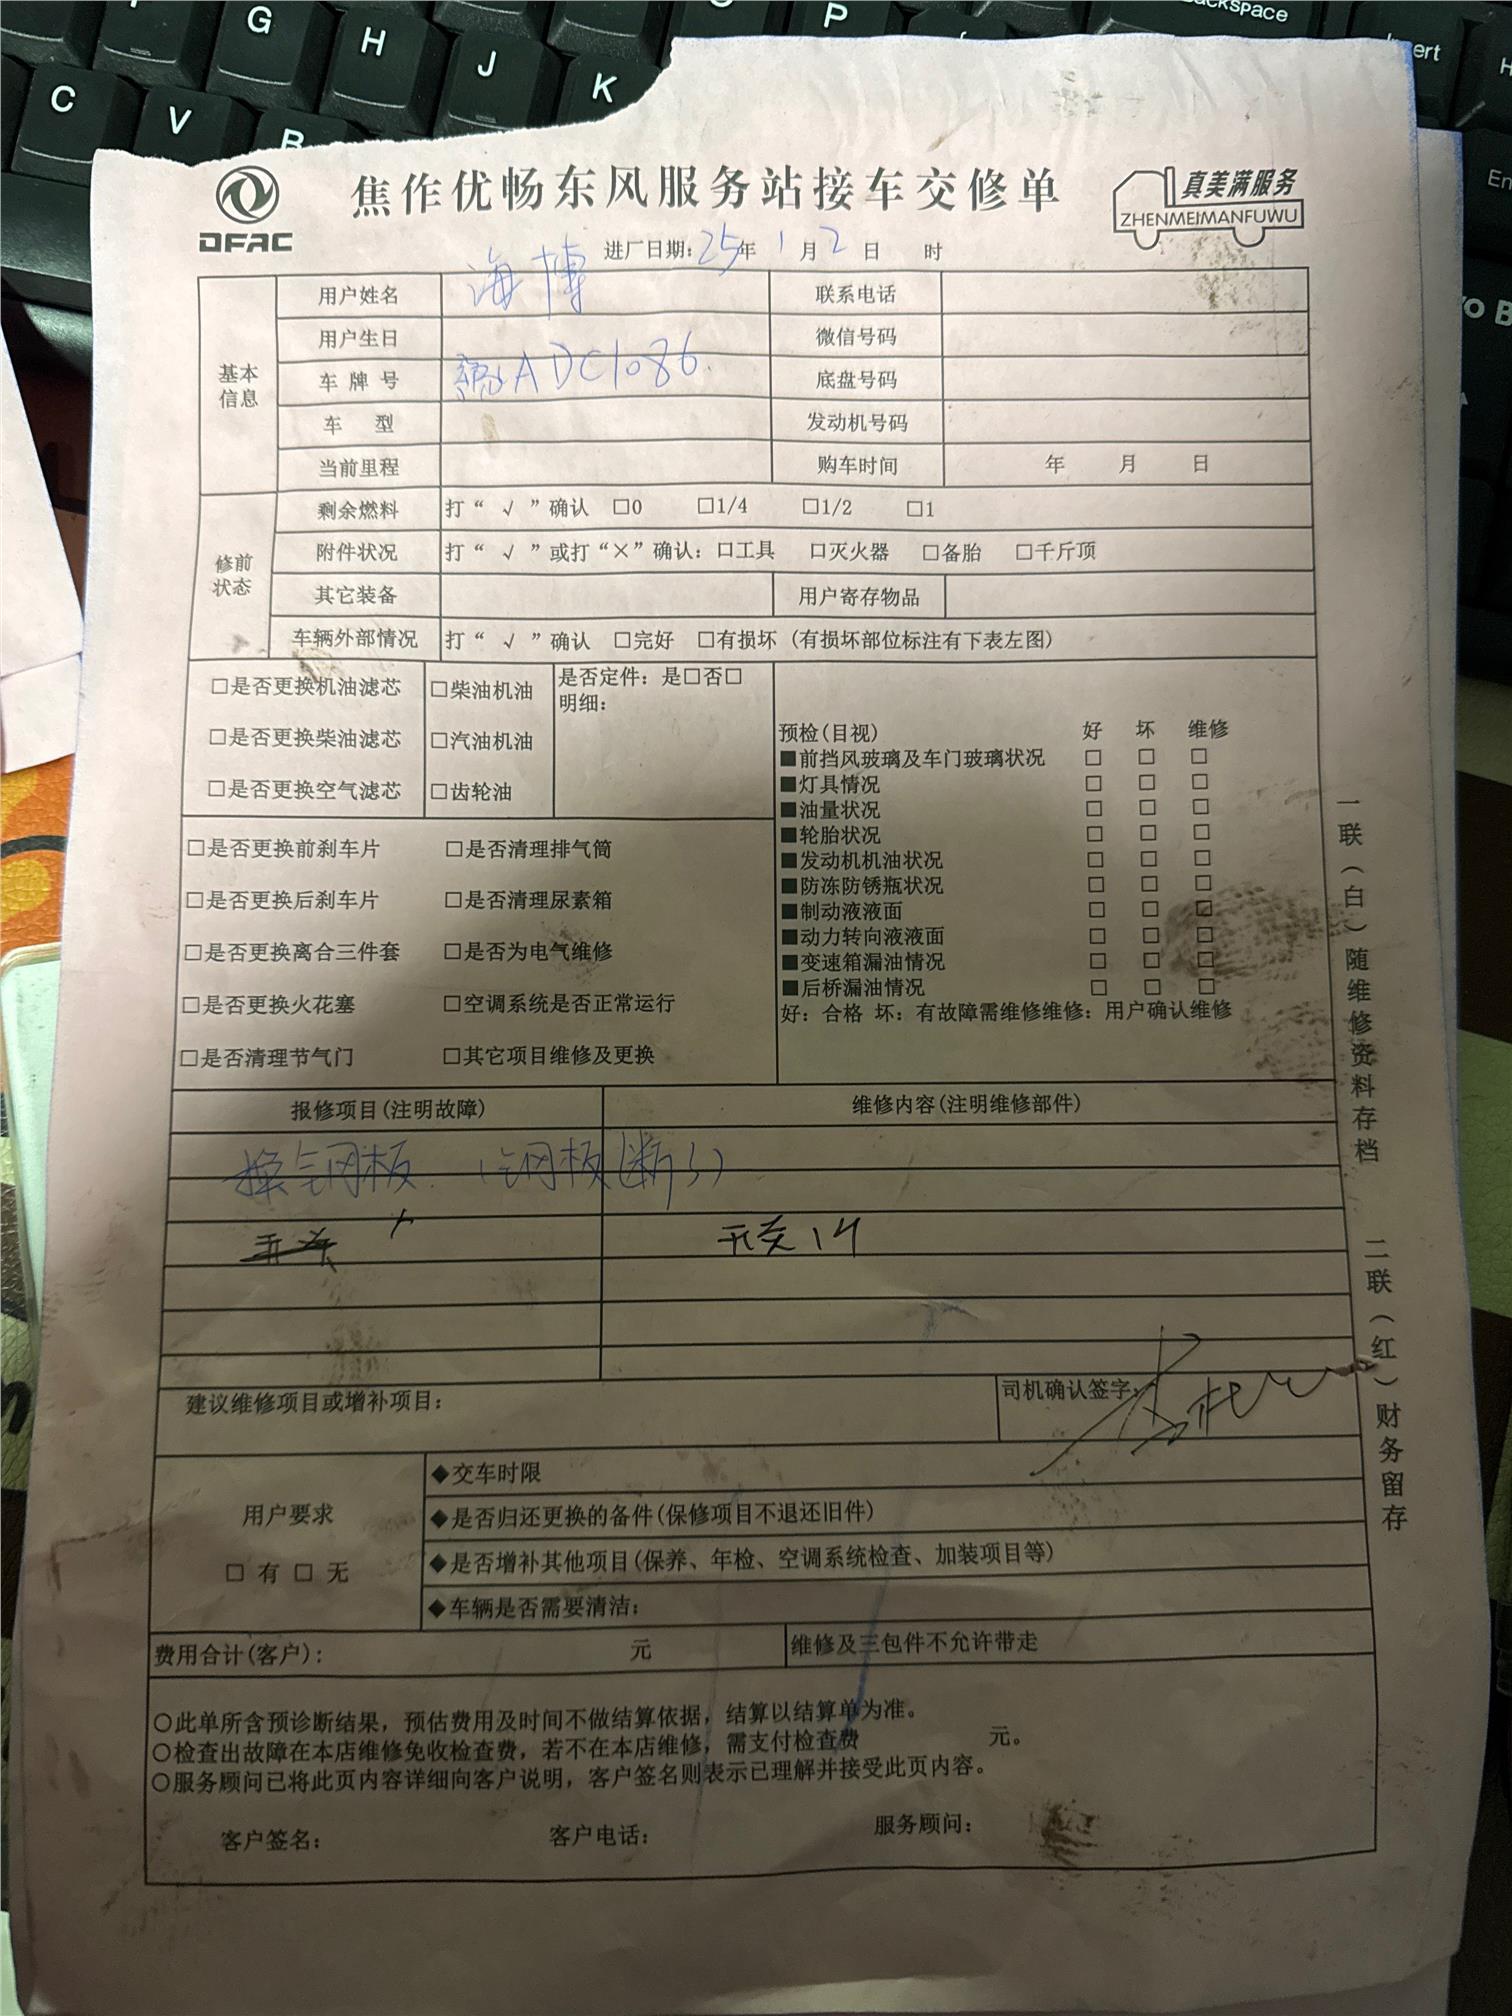 G H J K P Backspace
C V B
焦作优畅东风服务站接车交修单
DFAC
真美满服务
ZHENMEIMANFUWU
进厂日期：25年 1月 2日 时
基本信息
用户姓名 海博 联系电话
用户生日 微信号码
车牌号 ADC1086 底盘号码
车 型 发动机号码
当前里程 购车时间 年 月 日
修前状态
剩余燃料 打“√”确认 □0 □1/4 □1/2 □1
附件状况 打“√”或打“×”确认：□工具 □灭火器 □备胎 □千斤顶
其它装备 用户寄存物品
车辆外部情况 打“√”确认 □完好 □有损坏（有损坏部位标注有下表左图）
□是否更换机油滤芯 □柴油机油 是否定件：是□否□
明细：
□是否更换柴油滤芯 □汽油机油
□是否更换空气滤芯 □齿轮油
□是否更换前刹车片 □是否清理排气筒
□是否更换后刹车片 □是否清理尿素箱
□是否更换离合三件套 □是否为电气维修
□是否更换火花塞 □空调系统是否正常运行
□是否清理节气门 □其它项目维修及更换
预检(目视) 好 坏 维修
■前挡风玻璃及车门玻璃状况 □ □ □
■灯具情况 □ □ □
■油量状况 □ □ □
■轮胎状况 □ □ □
■发动机机油状况 □ □ □
■防冻防锈瓶状况 □ □ □
■制动液液面 □ □ □
■动力转向液液面 □ □ □
■变速箱漏油情况 □ □ □
■后桥漏油情况 □ □ □
好：合格 坏：有故障需维修维修：用户确认维修
报修项目(注明故障) 维修内容(注明维修部件)
换钢板（钢板断了）
建议维修项目或增补项目：
司机确认签字：
用户要求
□ 有 □ 无
◆交车时限
◆是否归还更换的备件(保修项目不退还旧件)
◆是否增补其他项目(保养、年检、空调系统检查、加装项目等)
◆车辆是否需要清洁：
费用合计(客户)： 元 维修及三包件不允许带走
○此单所含预诊断结果，预估费用及时间不做结算依据，结算以结算单为准。
○检查出故障在本店维修免收检查费，若不在本店维修，需支付检查费 元。
○服务顾问已将此页内容详细向客户说明，客户签名则表示已理解并接受此页内容。
客户签名： 客户电话： 服务顾问：
一联（白）随维修资料存档 二联（红）财务留存